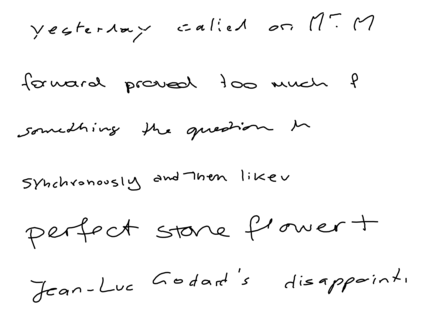 yesterday called on Mr. M
forward proved too much f
something the question h
synchronously and then likev
perfect stone flower t
Jean-Luc Godard's disappoint